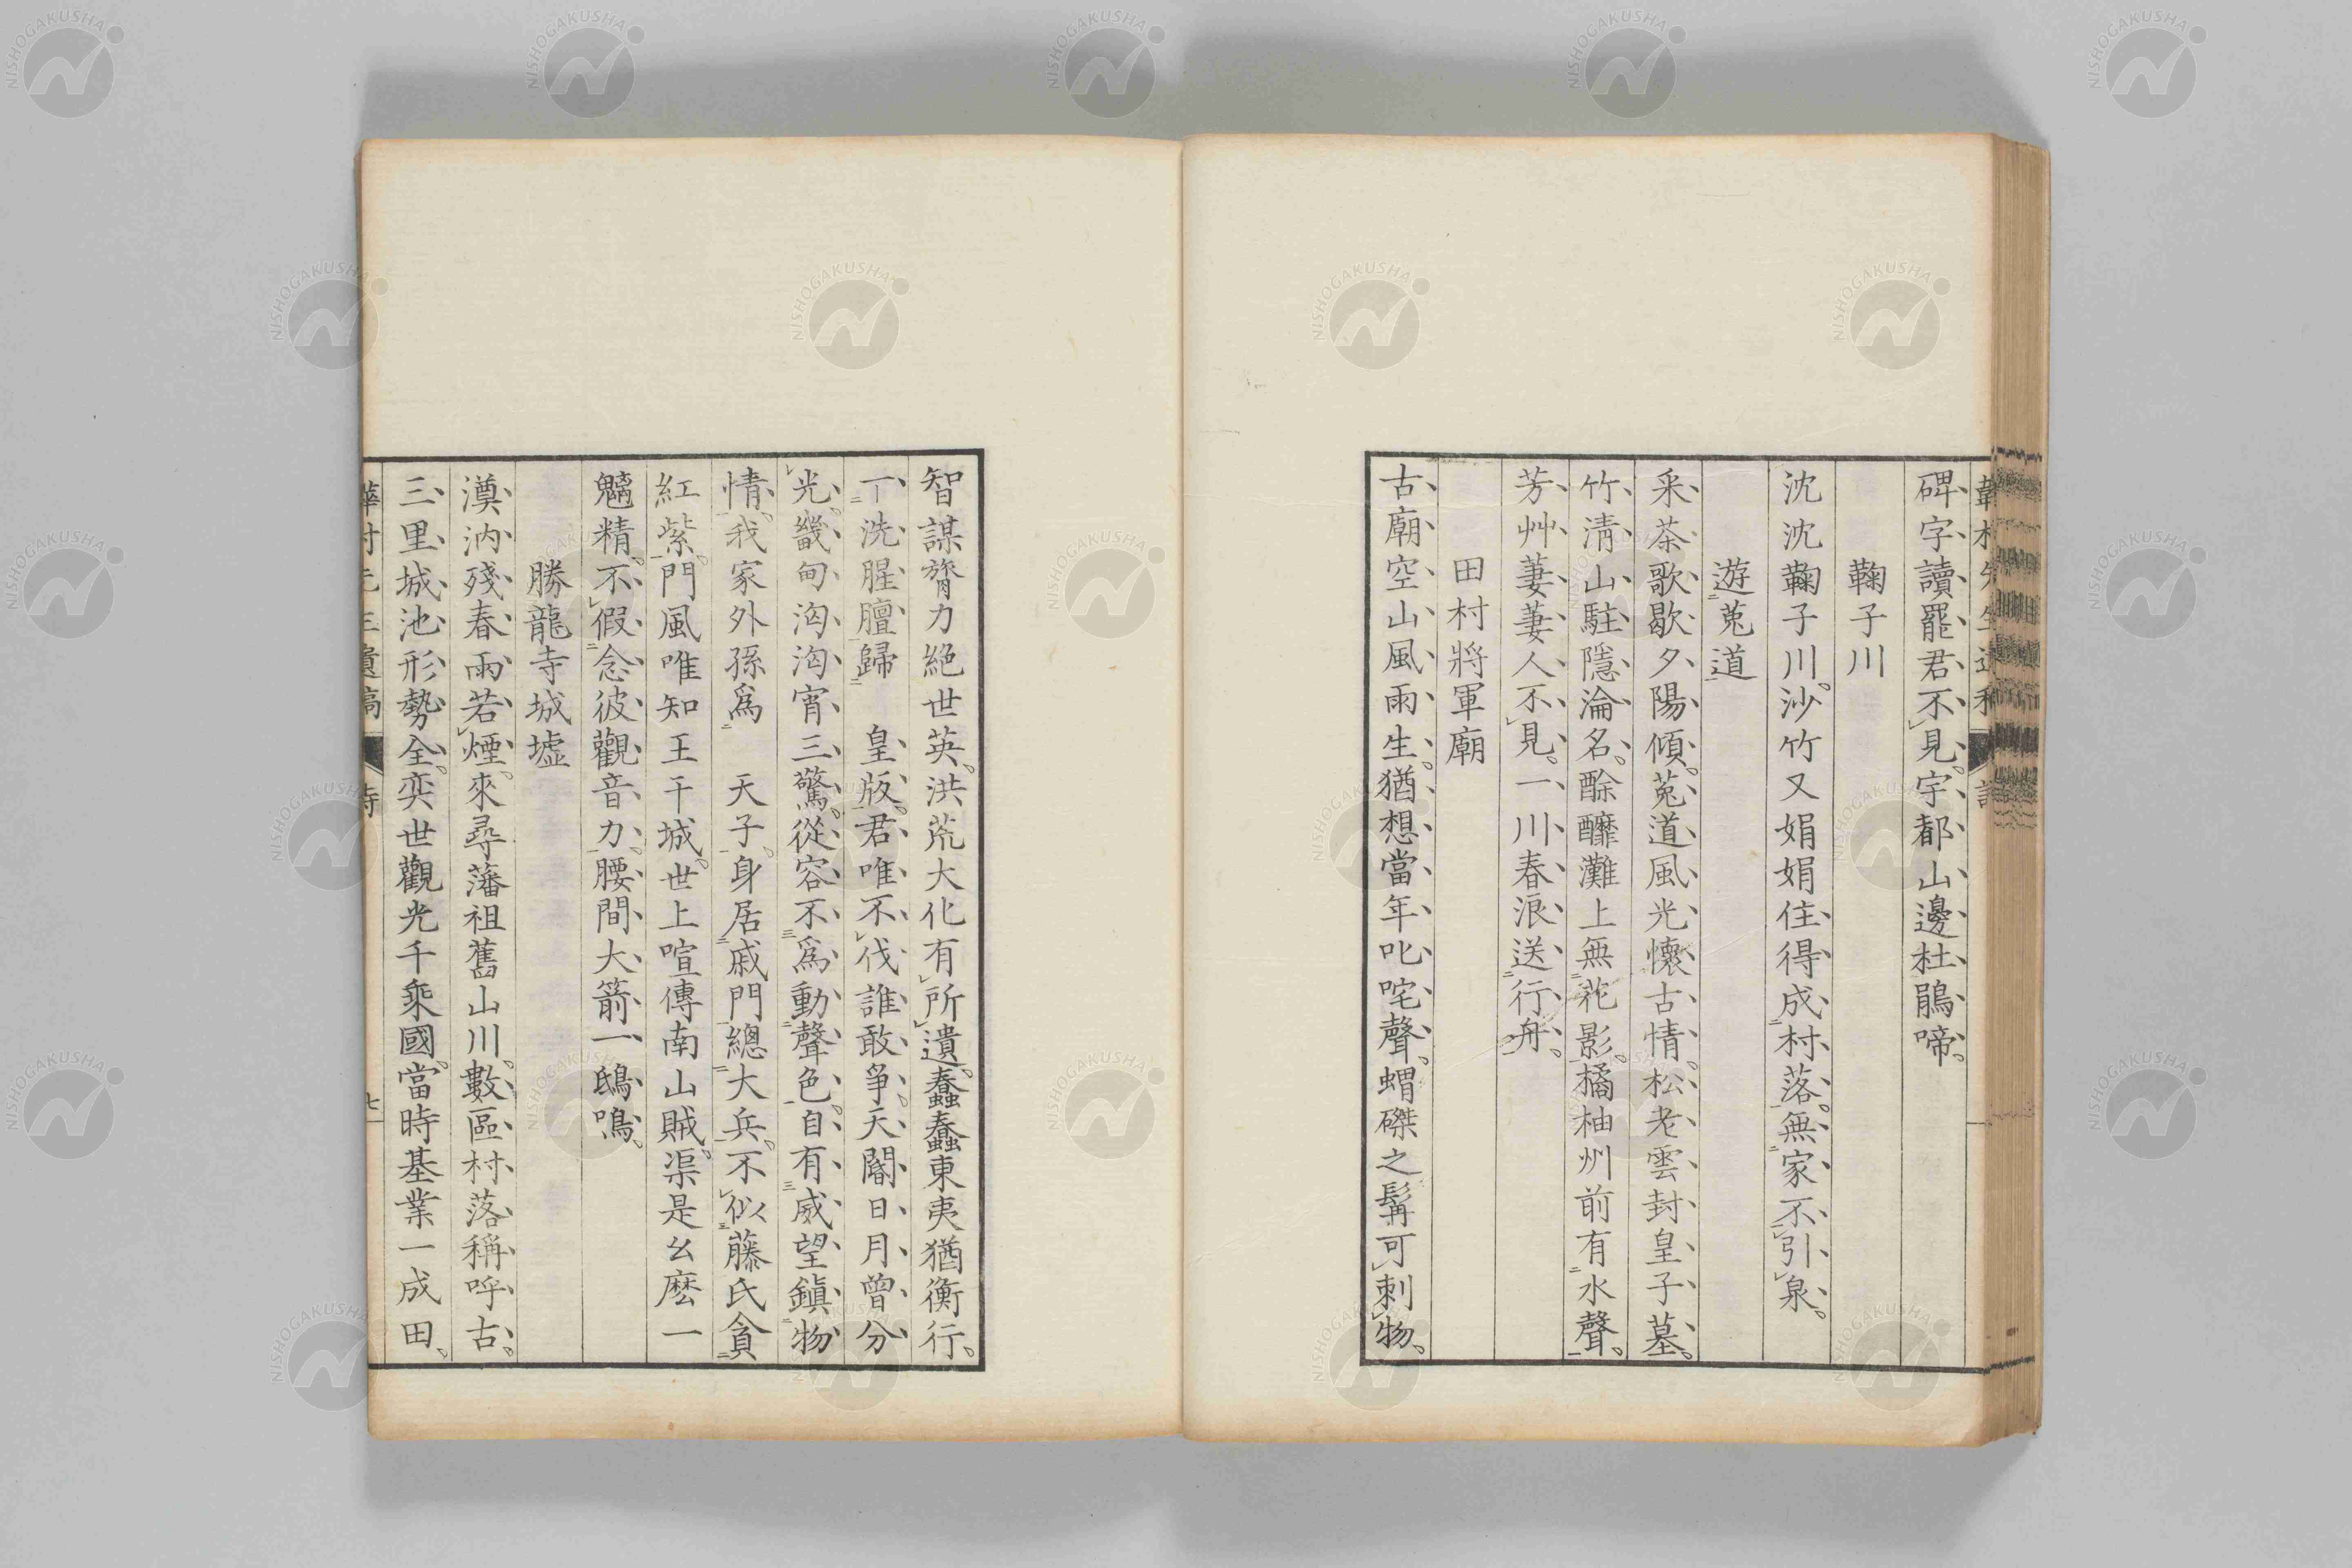 碑字讀罷君不見。宇都山邊杜鵑啼。
鞠子川
沈沈鞠子川。沙竹又娟娟住得成村落。無家不引泉。
遊菟道
采茶歌歇夕陽傾。菟道風光懷古情。松老雲封皇子墓。
竹清山駐隱淪名。酴醿灘上無花影。橘柚州前有水聲。
芳艸萋萋人不見。一川春浪送行舟。
田村將軍廟
古廟空山風雨生。猶想當年叱咤聲。蝟磔之髯可刺物。
智謀膂力絕世英。洪荒大化有所遺。蠢蠢東夷猶衡行。
一洗腥膻歸 皇版。君唯不伐誰敢爭。天閽日月曾分
光。畿甸洶洶宵三驚。從容不爲動聲色。自有威望鎮物
情。我家外孫爲 天子。身居戚門總大兵。不似藤氏貪
紅紫。門風唯知王干城。世上喧傳南山賊。渠是幺麽一
魑精。不假念彼觀音力。腰間大箭一鴟鳴。
勝龍寺城墟
漠汭殘春雨若煙。來尋藩祖舊山川。數區村落稱呼古。
三里城池形勢全。奕世觀光千乘國。當時基業一成田。
詩
七
NISHOGAKUSHA